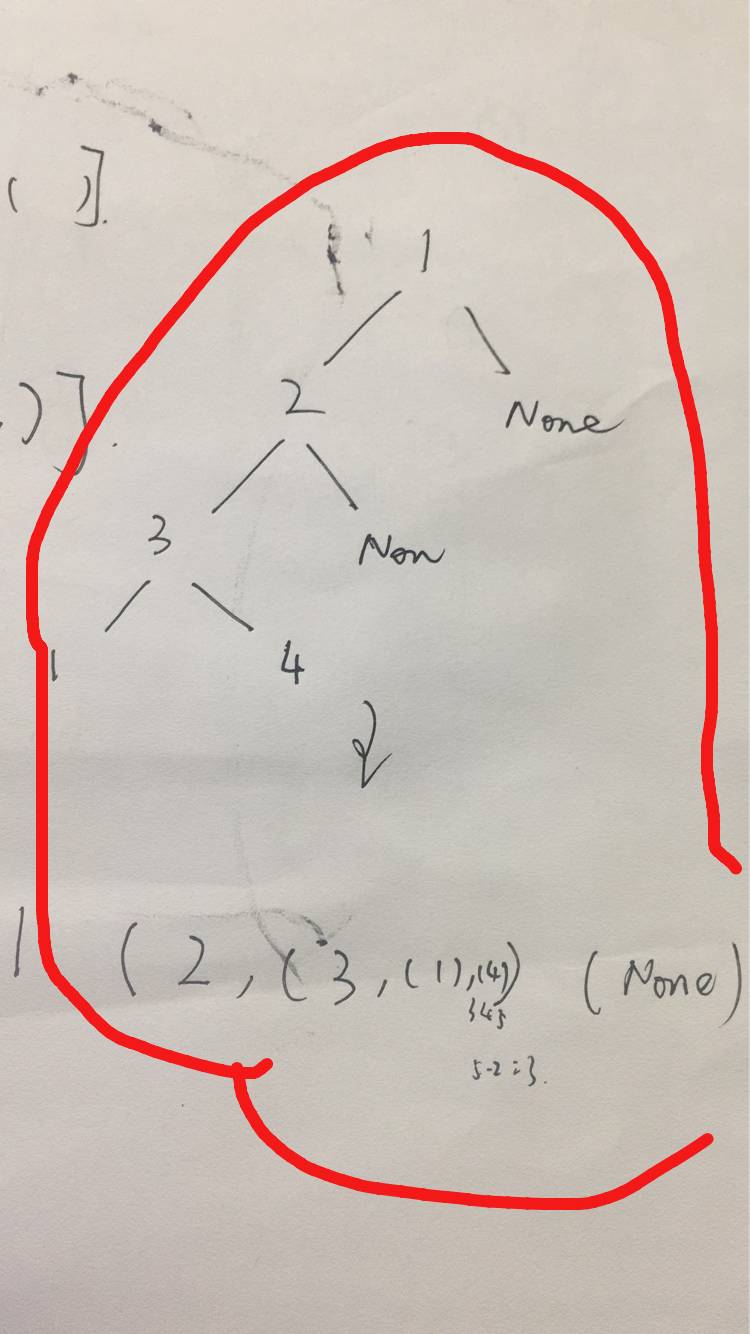 ( )].
1
2
None
)].
3
Non
1
4
1 ( 2 , ( 3 , ( 1 ) , (4) ) ( None )
5-2=3.